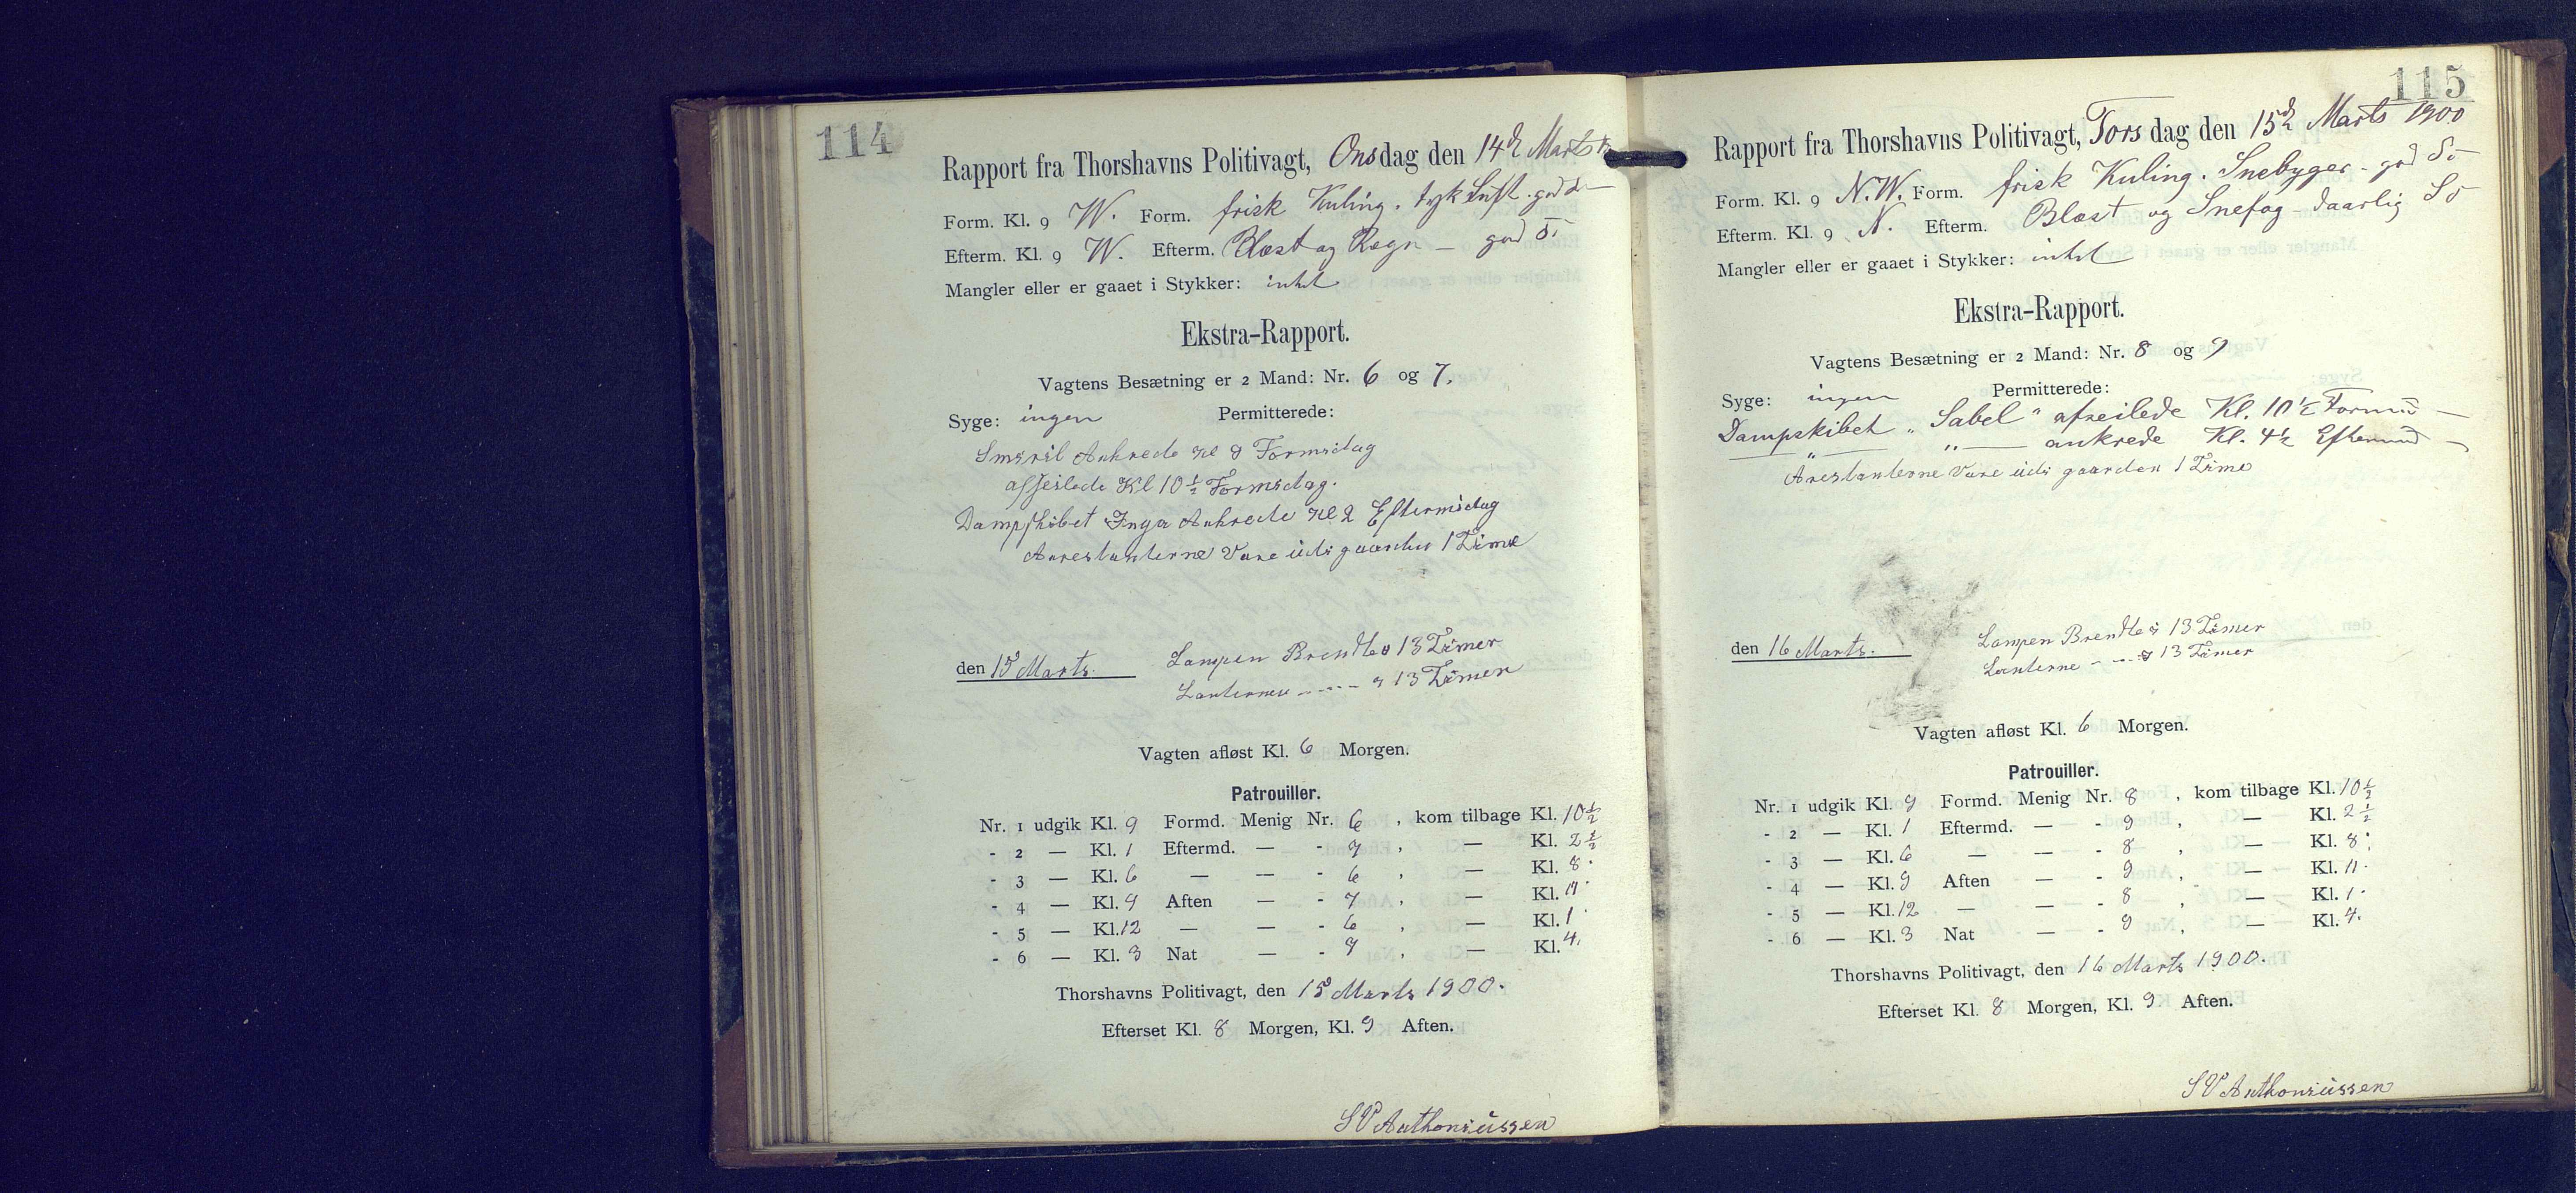 114
Rapport fra Thorshavns Politivagt, Onsdag den 14d Marts
Form. Kl. 9 W. Form. frisk Kuling. tyk Luft. god
Efterm. Kl. 9 W. Efterm. Blæst og Regn — god
Mangler eller er gaaet i Stykker: intet
Ekstra-Rapport.
Vagtens Besætning er 2 Mand: Nr. 6 og 7.
Syge: ingen Permitterede:
Smiril Ankrede Kl 8 Formidag
afseilede Kl 10½ Formidag.
Dampskibet Inga Ankrede Kl 2 Eftermidag
Arrestanterne Vare udi gaarden 1 Time
den 15 Marts. Lampen Brendte 13 Timer
Lanternen - - - - 13 Timer
Vagten afløst Kl. 6 Morgen.
Patrouiller.
Nr. 1 udgik Kl. 9 Formd. Menig Nr. 6, kom tilbage Kl. 10½
- 2 — Kl. 1 Eftermd. — - 7, — Kl. 2½
- 3 — Kl. 6 — — - 6, — Kl. 8.
- 4 — Kl. 9 Aften — - 7, — Kl. 11.
- 5 — Kl. 12 — — - 6, — Kl. 1.
- 6 — Kl. 3 Nat — - 7, — Kl. 4.
Thorshavns Politivagt, den 15 Marts 1900.
Efterset Kl. 8 Morgen, Kl. 9 Aften.
SP Anthoniussen
115
Rapport fra Thorshavns Politivagt, Torsdag den 15d Marts 1900
Form. Kl. 9 N.W. Form. frisk Kuling. Snebyger - god Sö
Efterm. Kl. 9 N. Efterm. Blæst og Snefog - daarlig Sö
Mangler eller er gaaet i Stykker: intet
Ekstra-Rapport.
Vagtens Besætning er 2 Mand: Nr. 8 og 9
Syge: ingen Permitterede:
Dampskibet „Sabel" afseilede Kl. 10½ Formd —
— " — " — ankrede Kl. 4½ Eftermd —
Arestanterne Vare udi gaarden 1 Time
den 16 Marts. Lampen Brendte i 13 Timer
Lanterne - - - - 13 Timer
Vagten afløst Kl. 6 Morgen.
Patrouiller.
Nr. 1 udgik Kl. 9 Formd. Menig Nr. 8, kom tilbage Kl. 10½
- 2 — Kl. 1 Eftermd. — - 9, — Kl. 2½
- 3 — Kl. 6 — — - 8, — Kl. 8.
- 4 — Kl. 9 Aften — - 9, — Kl. 11.
- 5 — Kl. 12 — — - 8, — Kl. 1.
- 6 — Kl. 3 Nat — - 9, — Kl. 4.
Thorshavns Politivagt, den 16 Marts 1900.
Efterset Kl. 8 Morgen, Kl. 9 Aften.
SP Anthoniussen